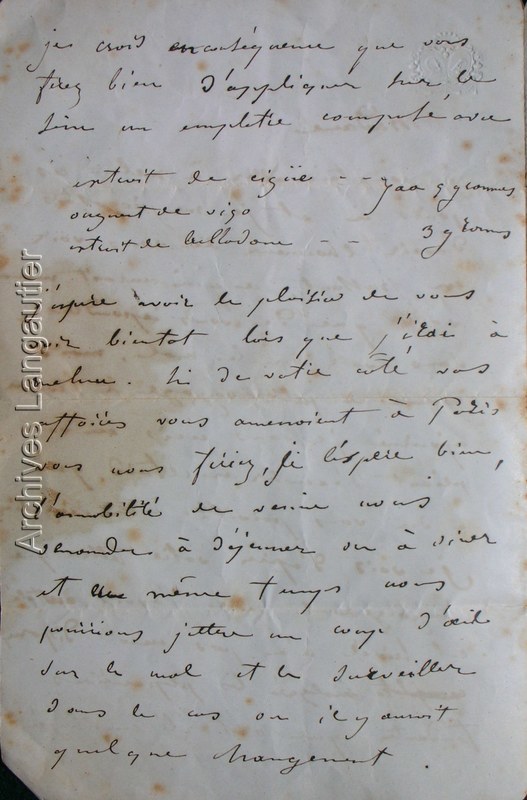 je crois en conséquence que vous
ferez bien d'appliquer sur le
sein un emplâtre composé avec
extrait de cigüe -- } aa 5 grammes
onguent de vigo
extrait de belladone -- 3 grams
j'espère avoir le plaisir de vous
voir bientot lors que j'irai à
melun. Si de votre côté vos
affaires vous amenoient à Paris
vous nous ferez, je l'espère bien,
l'amabilité de venir nous
demander à déjeuner ou à diner
et en même temps nous
pourrions jetter un coup d'œil
sur le mal et le surveiller
dans le cas ou il y auroit
quelque changement.
Archives Langautier